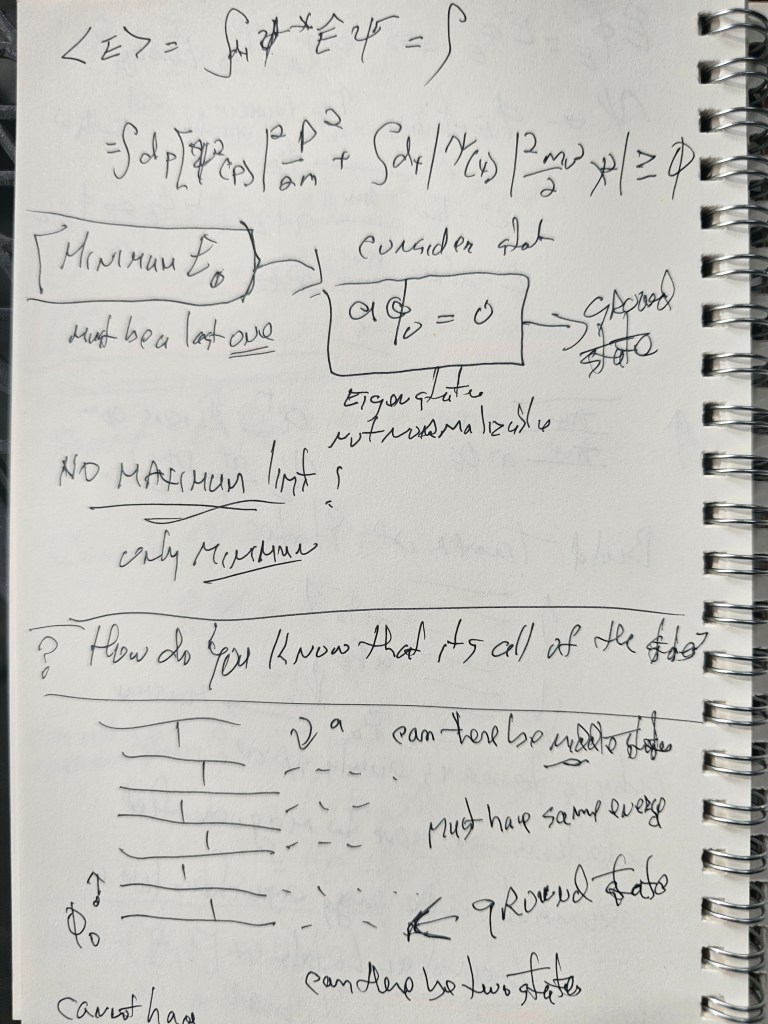 ⟨E⟩ = ∫dx ψ* Ê ψ = ∫
= ∫dp |ψ²(p)|² p²/2m + ∫dx |ψ(x)|² mω²/2 x² | ≥ ϕ
MINIMUM E₀
must be a last one
consider stat
a ϕ₀ = 0
ground
state
Eigenstate
not normalizable
NO MAXIMUM limt ?
only MINIMUN
? How do you know that its all of the
can there be middle states
must have same energy
ϕ₀
GROUND state
can there be two states
cannot have